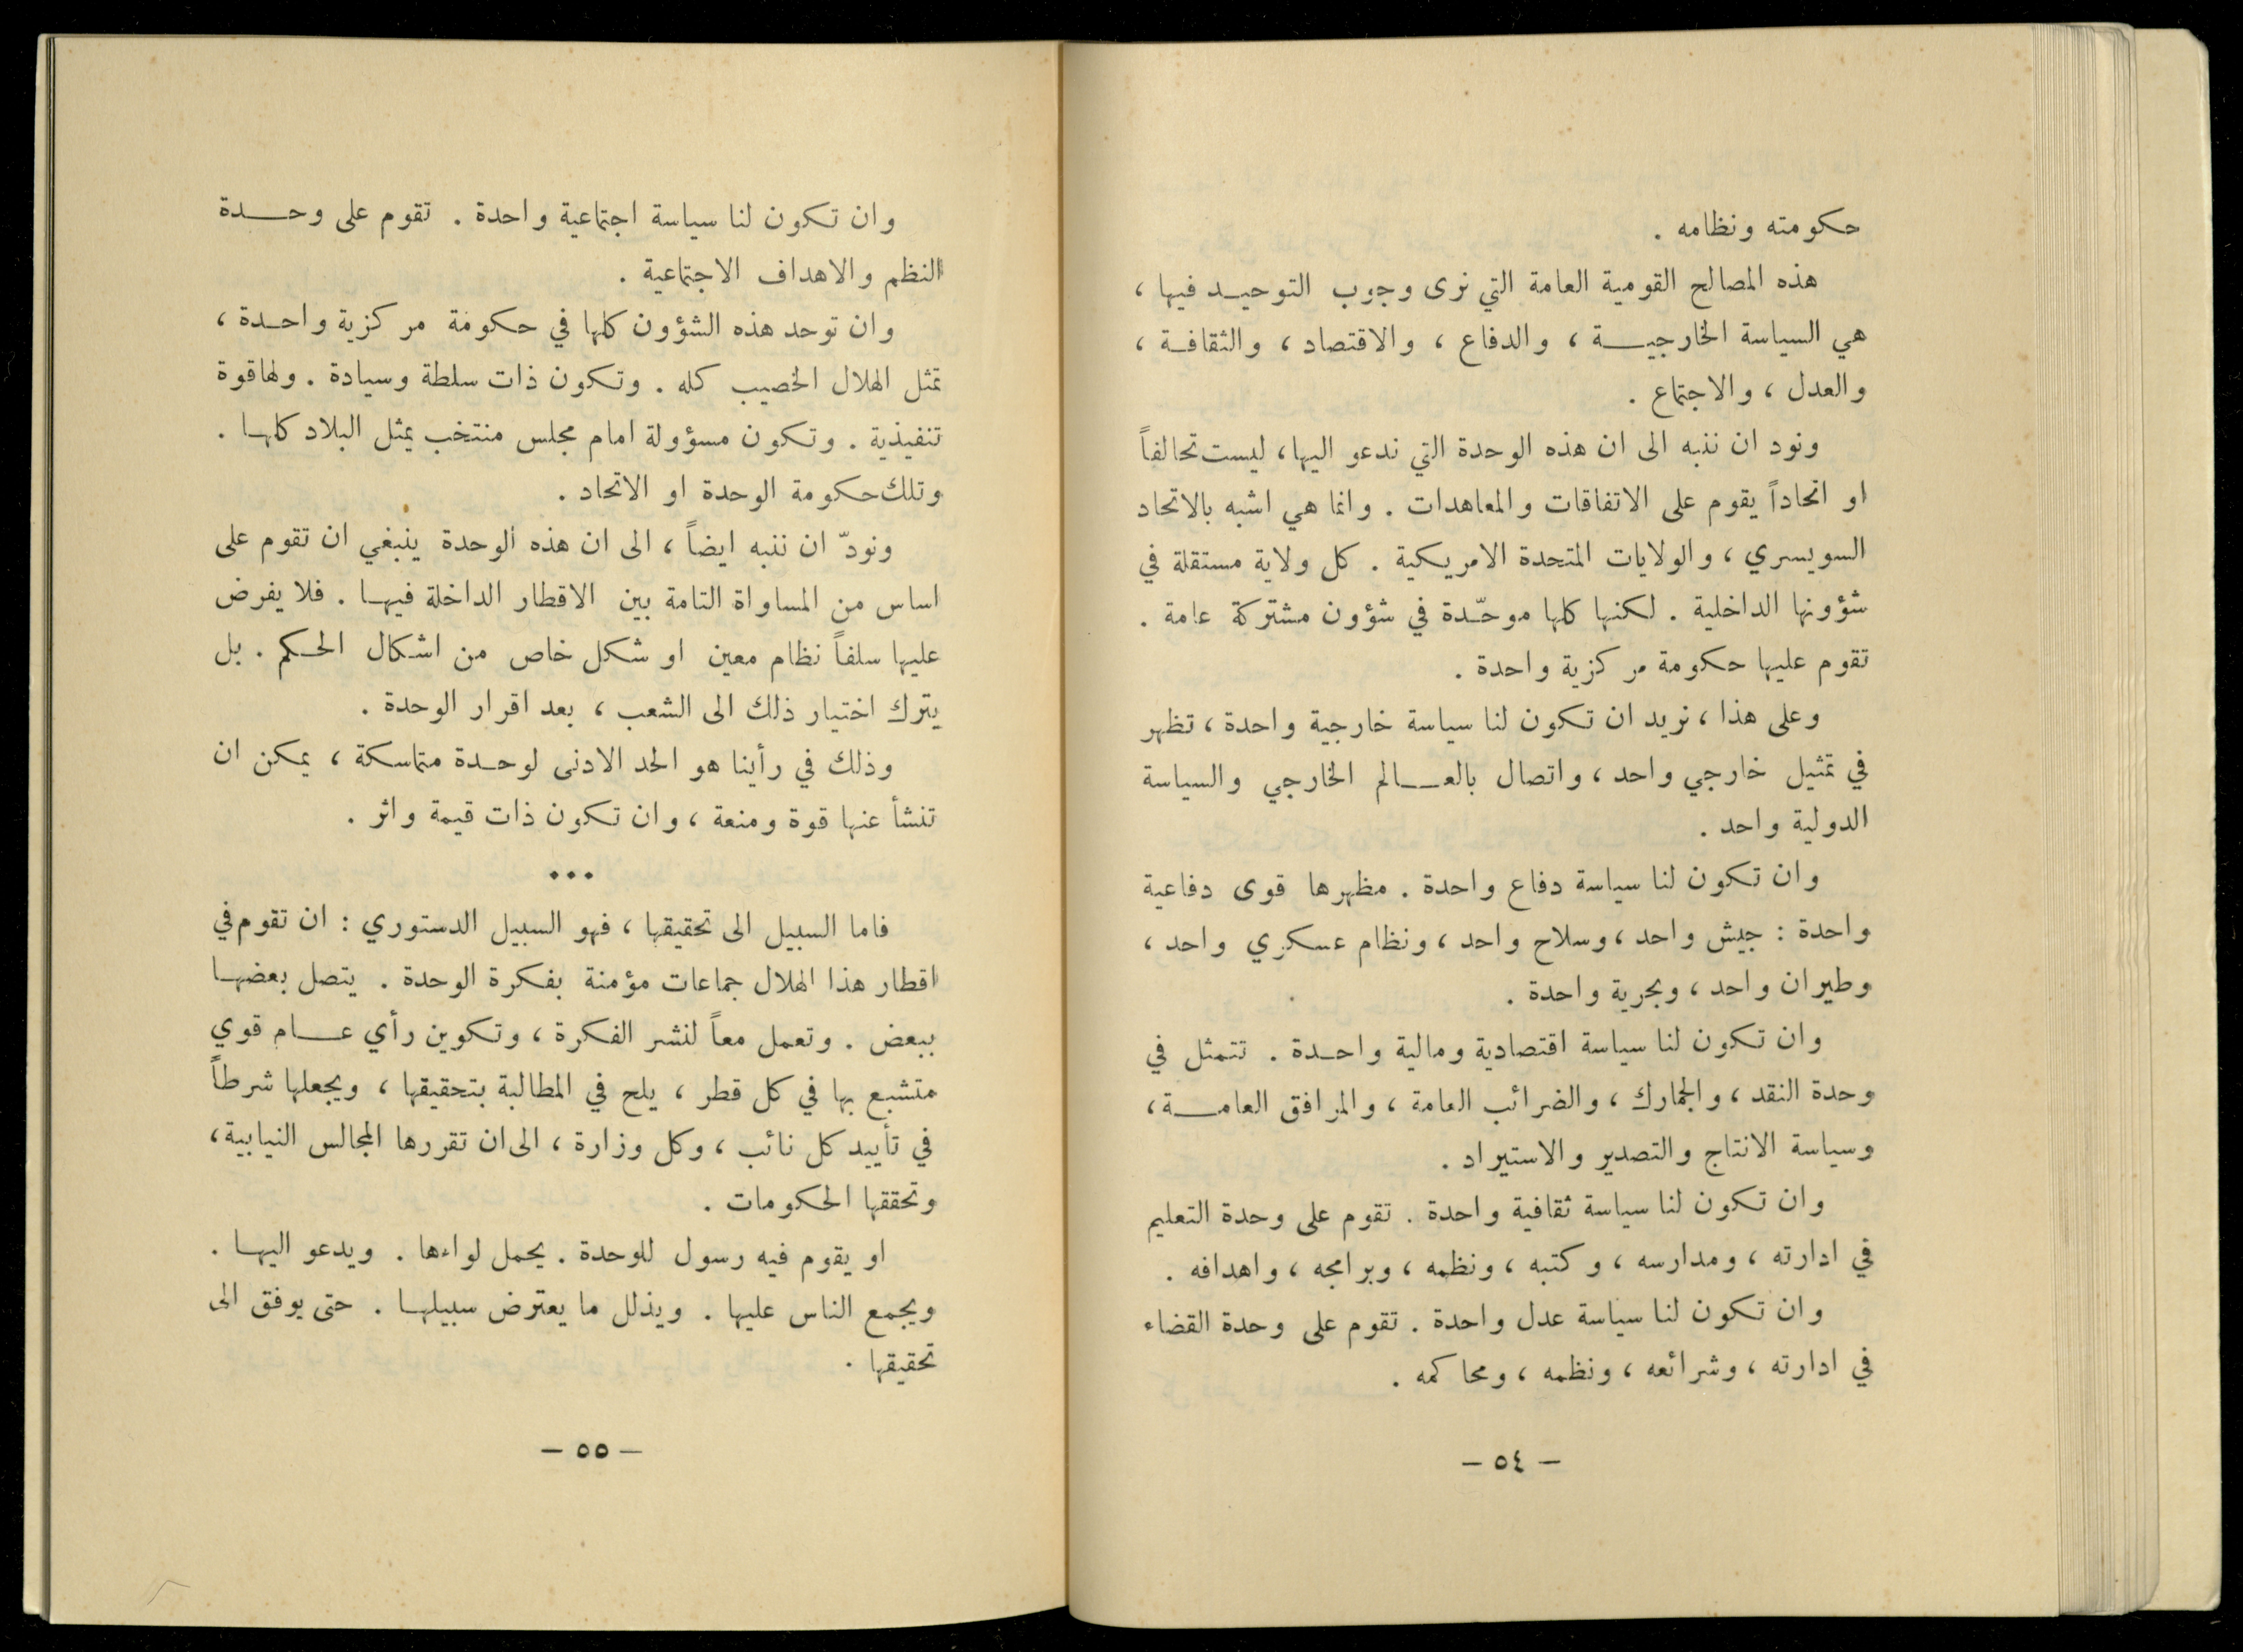 حكومته ونظامه .
هذه المصالح القومية العامة التي نرى وجوب التوحيد فيها ،
هي السياسة الخارجية ، والدفاع ، والاقتصاد ، والثقافة ،
والعدل ، والاجتماع .
ونود ان ننبه الى ان هذه الوحدة التي ندعو اليها، ليست تحالفاً
او اتحاداً يقوم على الاتفاقات والمعاهدات . وانما هي اشبه بالاتحاد
السويسري ، والولايات المتحدة الامريكية . كل ولاية مستقلة في
شؤونها الداخلية . لكنها كلها موحّدة في شؤون مشتركة عامة .
تقوم عليها حكومة مركزية واحدة .
وعلى هذا ، نريد ان تكون لنا سياسة خارجية واحدة ، تظهر
في تمثيل خارجي واحد ، واتصال بالعالم الخارجي والسياسة
الدولية واحد .
وان تكون لنا سياسة دفاع واحدة . مظهرها قوى دفاعية
واحدة : جيش واحد ، وسلاح واحد ، ونظام عسكري واحد ،
وطيران واحد ، وبحرية واحدة .
وان تكون لنا سياسة اقتصادية ومالية واحدة . تتمثل في
وحدة النقد ، والجمارك ، والضرائب العامة ، والمرافق العامة ،
وسياسة الانتاج والتصدير والاستيراد .
وان تكون لنا سياسة ثقافية واحدة . تقوم على وحدة التعليم
في ادارته ، ومدارسه ، وكتبه ، ونظمه ، وبرامجه ، واهدافه .
وان تكون لنا سياسة عدل واحدة . تقوم على وحدة القضاء
في ادارته ، وشرائعه ، ونظمه ، ومحاكمه .
– ٥٤ –
وان تكون لنا سياسة اجتماعية واحدة . تقوم على وحدة
النظم والاهداف الاجتماعية .
وان توحد هذه الشؤون كلها في حكومة مركزية واحدة ،
تمثل الهلال الخصيب كله . وتكون ذات سلطة وسيادة . ولها قوة
تنفيذية . وتكون مسؤولة امام مجلس منتخب يمثل البلاد كلها .
وتلك حكومة الوحدة او الاتحاد .
ونودّ ان ننبه ايضاً ، الى ان هذه الوحدة ينبغي ان تقوم على
اساس من المساواة التامة بين الاقطار الداخلة فيها . فلا يفرض
عليها سلفاً نظام معين او شكل خاص من اشكال الحكم . بل
يترك اختيار ذلك الى الشعب ، بعد اقرار الوحدة .
وذلك في رأينا هو الحد الادنى لوحدة متماسكة ، يمكن ان
تنشأ عنها قوة ومنعة ، وان تكون ذات قيمة واثر .
•••
فاما السبيل الى تحقيقها ، فهو السبيل الدستوري : ان تقوم في
اقطار هذا الهلال جماعات مؤمنة بفكرة الوحدة . يتصل بعضها
ببعض . وتعمل معاً لنشر الفكرة ، وتكوين رأي عام قوي
متشبع بها في كل قطر ، يلح في المطالبة بتحقيقها ، ويجعلها شرطاً
في تأييد كل نائب ، وكل وزارة ، الى ان تقررها المجالس النيابية ،
وتحققها الحكومات .
او يقوم فيه رسول للوحدة . يحمل لواءها . ويدعو اليها .
ويجمع الناس عليها . ويذلل ما يعترض سبيلها . حتى يوفق الى
تحقيقها .
– ٥٥ –